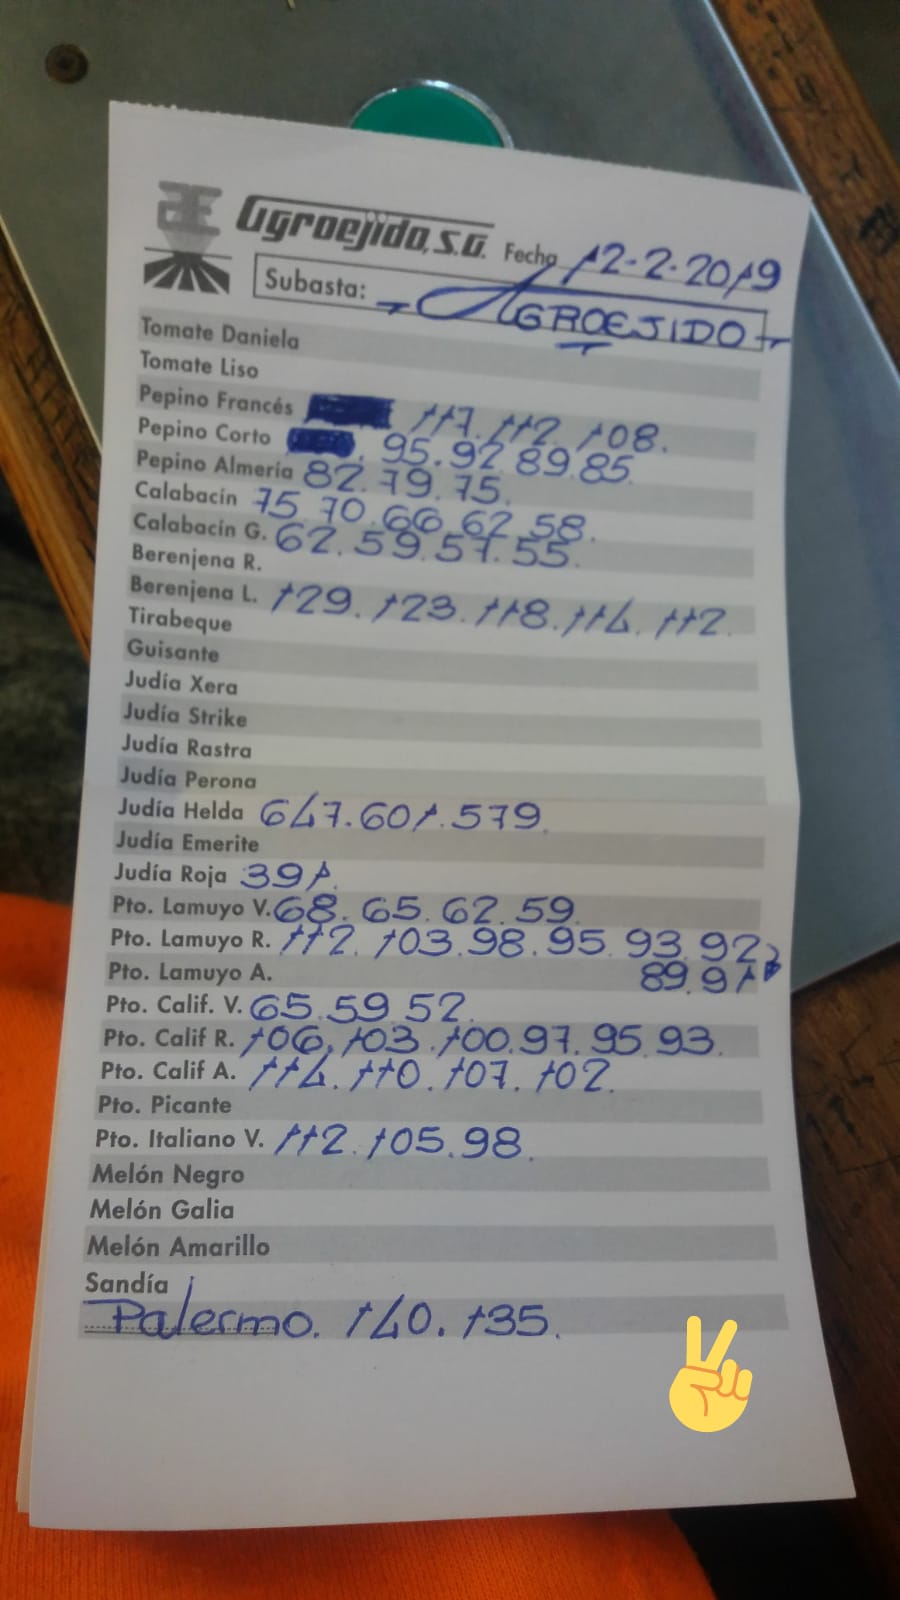 Agroejido, S.A. Fecha 12-2-2019
Subasta: AGROEJIDO
Tomate Daniela
Tomate Liso
Pepino Francés 117. 112. 108.
Pepino Corto 95. 92. 89. 85.
Pepino Almería 82. 79. 75.
Calabacín 75. 70. 66. 62. 58.
Calabacín G. 62. 59. 57. 55.
Berenjena R.
Berenjena L. 129. 123. 118. 114. 112.
Tirabeque
Guisante
Judía Xera
Judía Strike
Judía Rastra
Judía Perona
Judía Helda 647. 601. 579.
Judía Emerite
Judía Roja 391.
Pto. Lamuyo V. 68. 65. 62. 59.
Pto. Lamuyo R. 112. 103. 98. 95. 93. 92
Pto. Lamuyo A. 89. 91
Pto. Calif. V. 65. 59. 52.
Pto. Calif R. 106. 103. 100. 97. 95. 93.
Pto. Calif A. 114. 110. 107. 102.
Pto. Picante
Pto. Italiano V. 112. 105. 98.
Melón Negro
Melón Galia
Melón Amarillo
Sandía
Palermo. 140. 135.